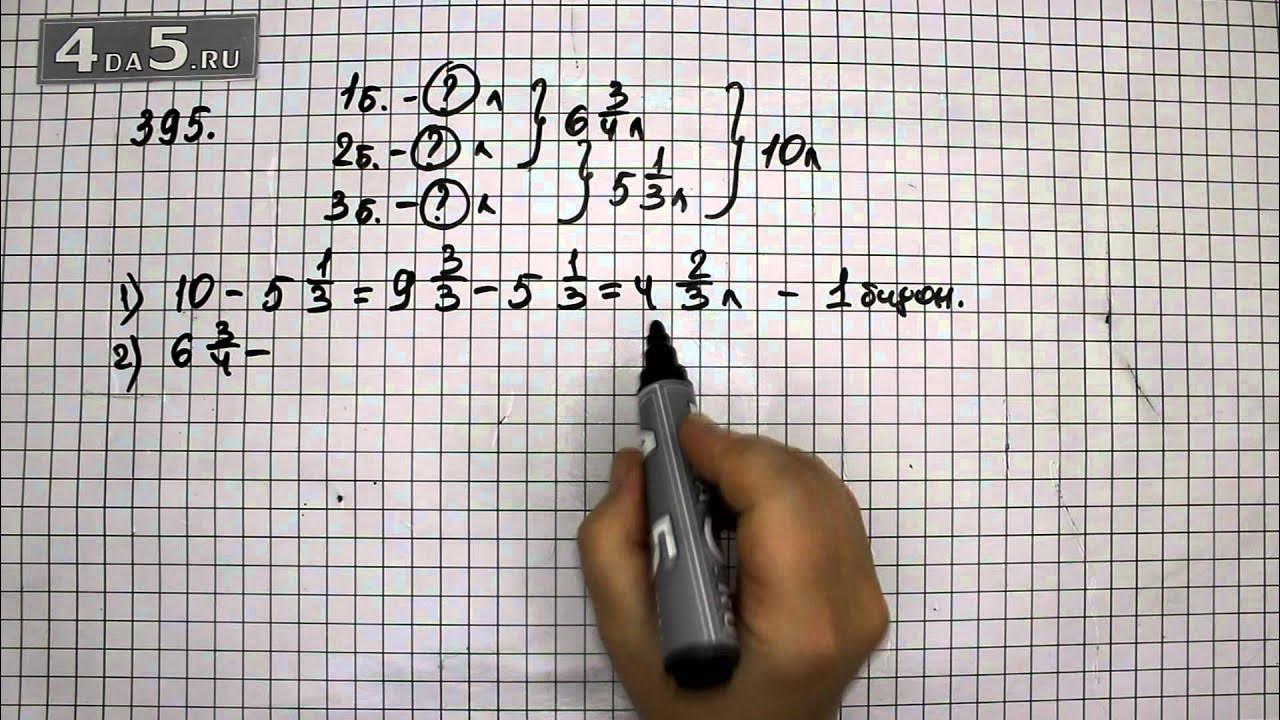 4DA5.RU
395.
1б. - ? л
2б. - ? л
3б. - ? л
6 3/4 л
5 1/3 л
10л
1) 10 - 5 1/3 = 9 3/3 - 5 1/3 = 4 2/3 л - 1 бидон.
2) 6 3/4 -